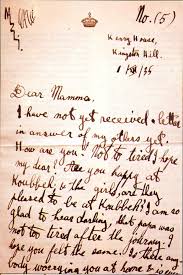 No. (5)
Kerry House,
Kingston Hill.
Dear Mamma,
I have not yet received a letter
in answer of my others yet.
How are you? Not to tired I hope
my dear! Are you happy at
Koubbeh, & the girls, are they
pleased to be at Koubbeh? I am so
glad to hear darling, that papa was
not too tired after the journey. I
hope you felt the same. Is there any-
body worrying you at home & is